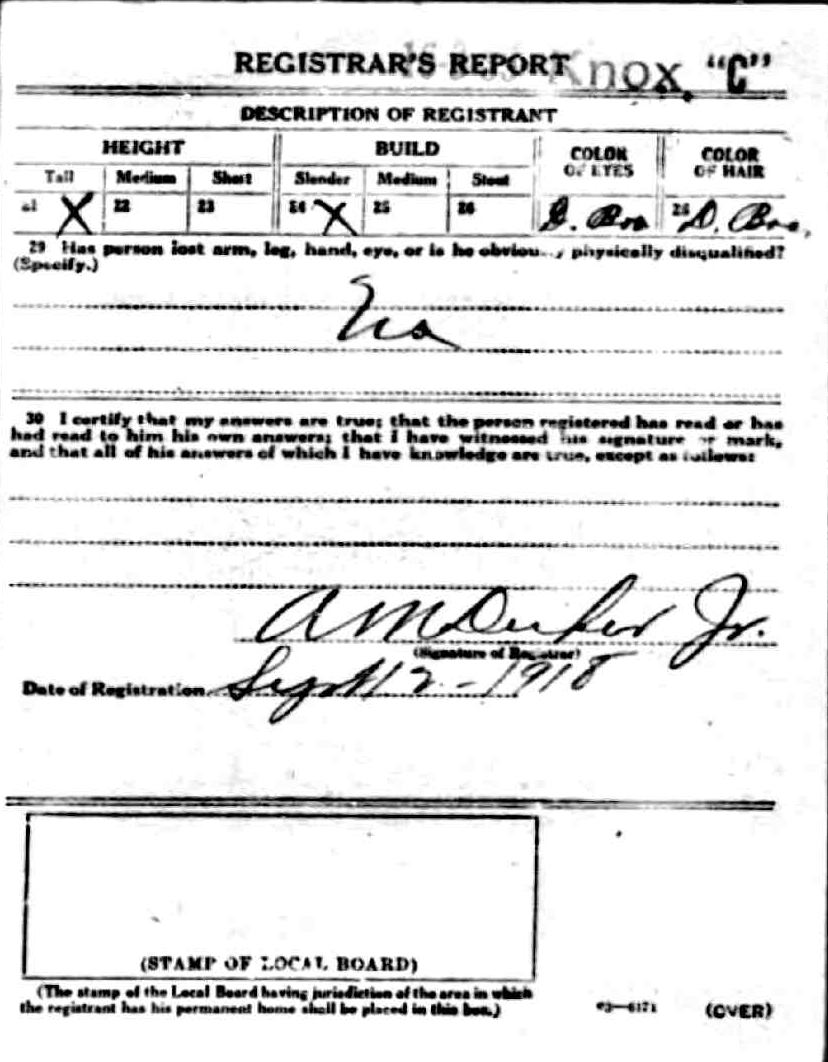 REGISTRAR'S REPORT Knox. "C"
DESCRIPTION OF REGISTRANT
HEIGHT BUILD COLOR OF EYES COLOR OF HAIR
Tall Medium Short Slender Medium Stout
21 X 22 23 24 X 25 26 Bro 28 D. Bro.
29 Has person lost arm, leg, hand, eye, or is he obviously physically disqualified?
(Specify.)
No
30 I certify that my answers are true; that the person registered has read or has
had read to him his own answers; that I have witnessed his signature or mark,
and that all of his answers of which I have knowledge are true, except as follows:
A M Jr.
(Signature of Registrar)
Date of Registration Sept 12 - 1918
(STAMP OF LOCAL BOARD)
(The stamp of the Local Board having jurisdiction of the area in which
the registrant has his permanent home shall be placed in this box.)
03—6171 (OVER)